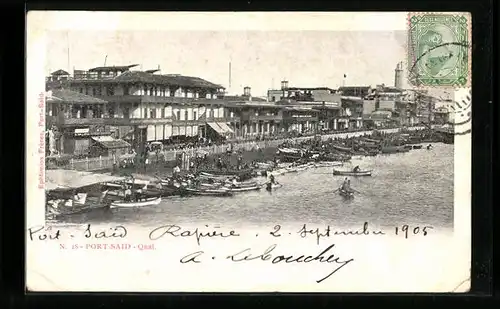 Ephtimios Frères, Port-Saïd
Port-Saïd Rapière. 2. Septembre 1905
N. 18 - PORT-SAID - Quai.
A. Lebouchery